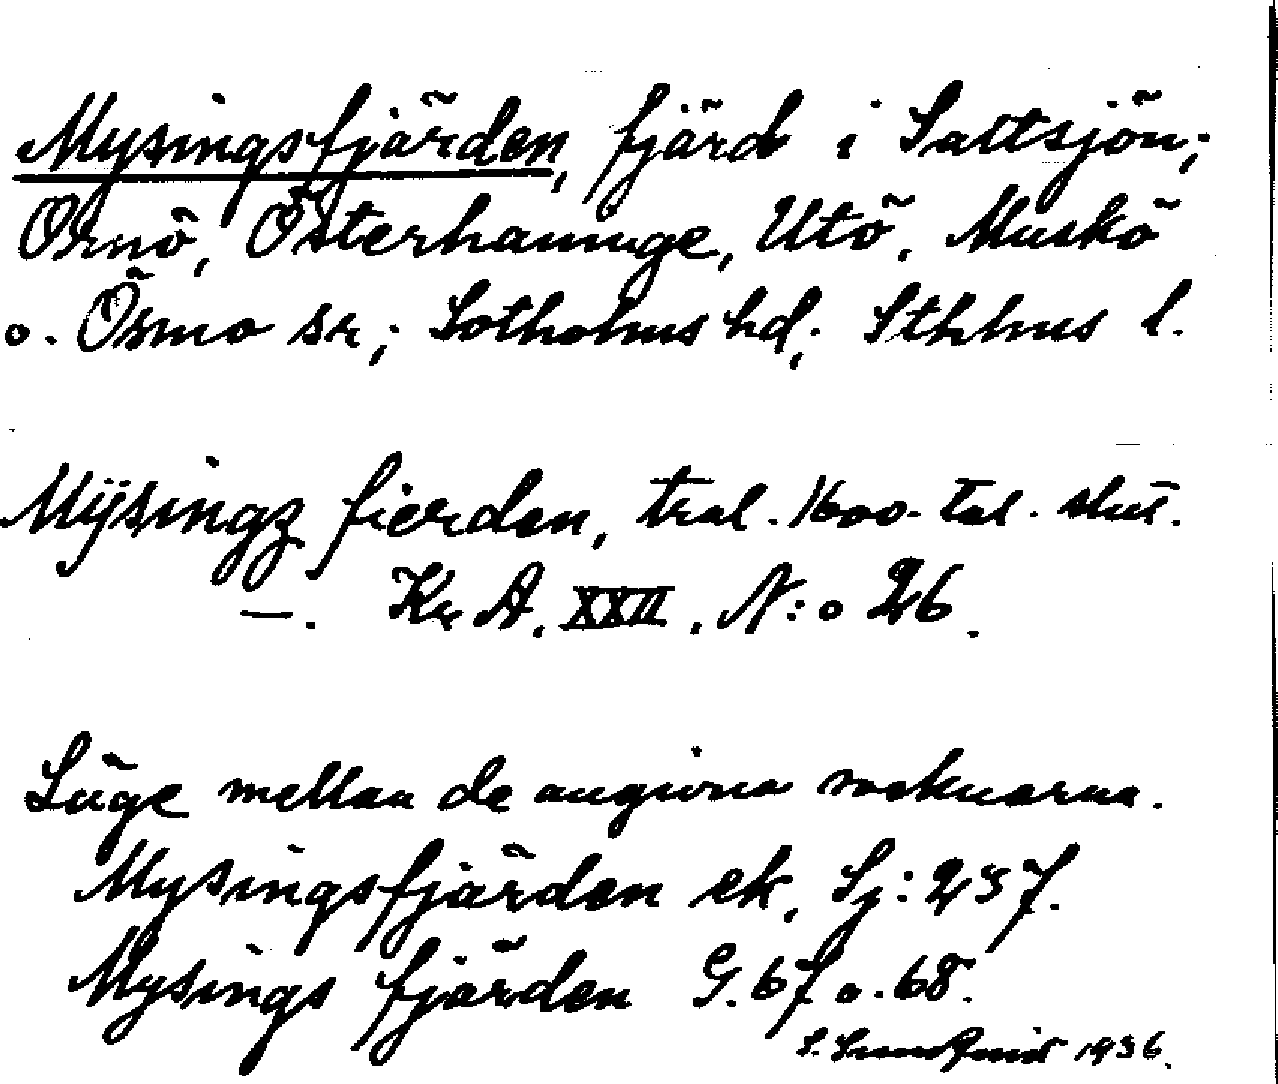 Mysingsfjärden, fjärd i Saltsjön;
Ornö, Österhaninge, Utö, Muskö
o. Ösmo sn; Sotholms hd; Sthlms l.
Mÿsingz fierden, trol. 1600-tal. slut.
—. Kr. A. XXII. N:o 26.
Läge mellan de angivna socknarna.
Mysingsfjärden ek. Sj: 257.
Mysings fjärden G. 67 o. 68.
S. 1936.